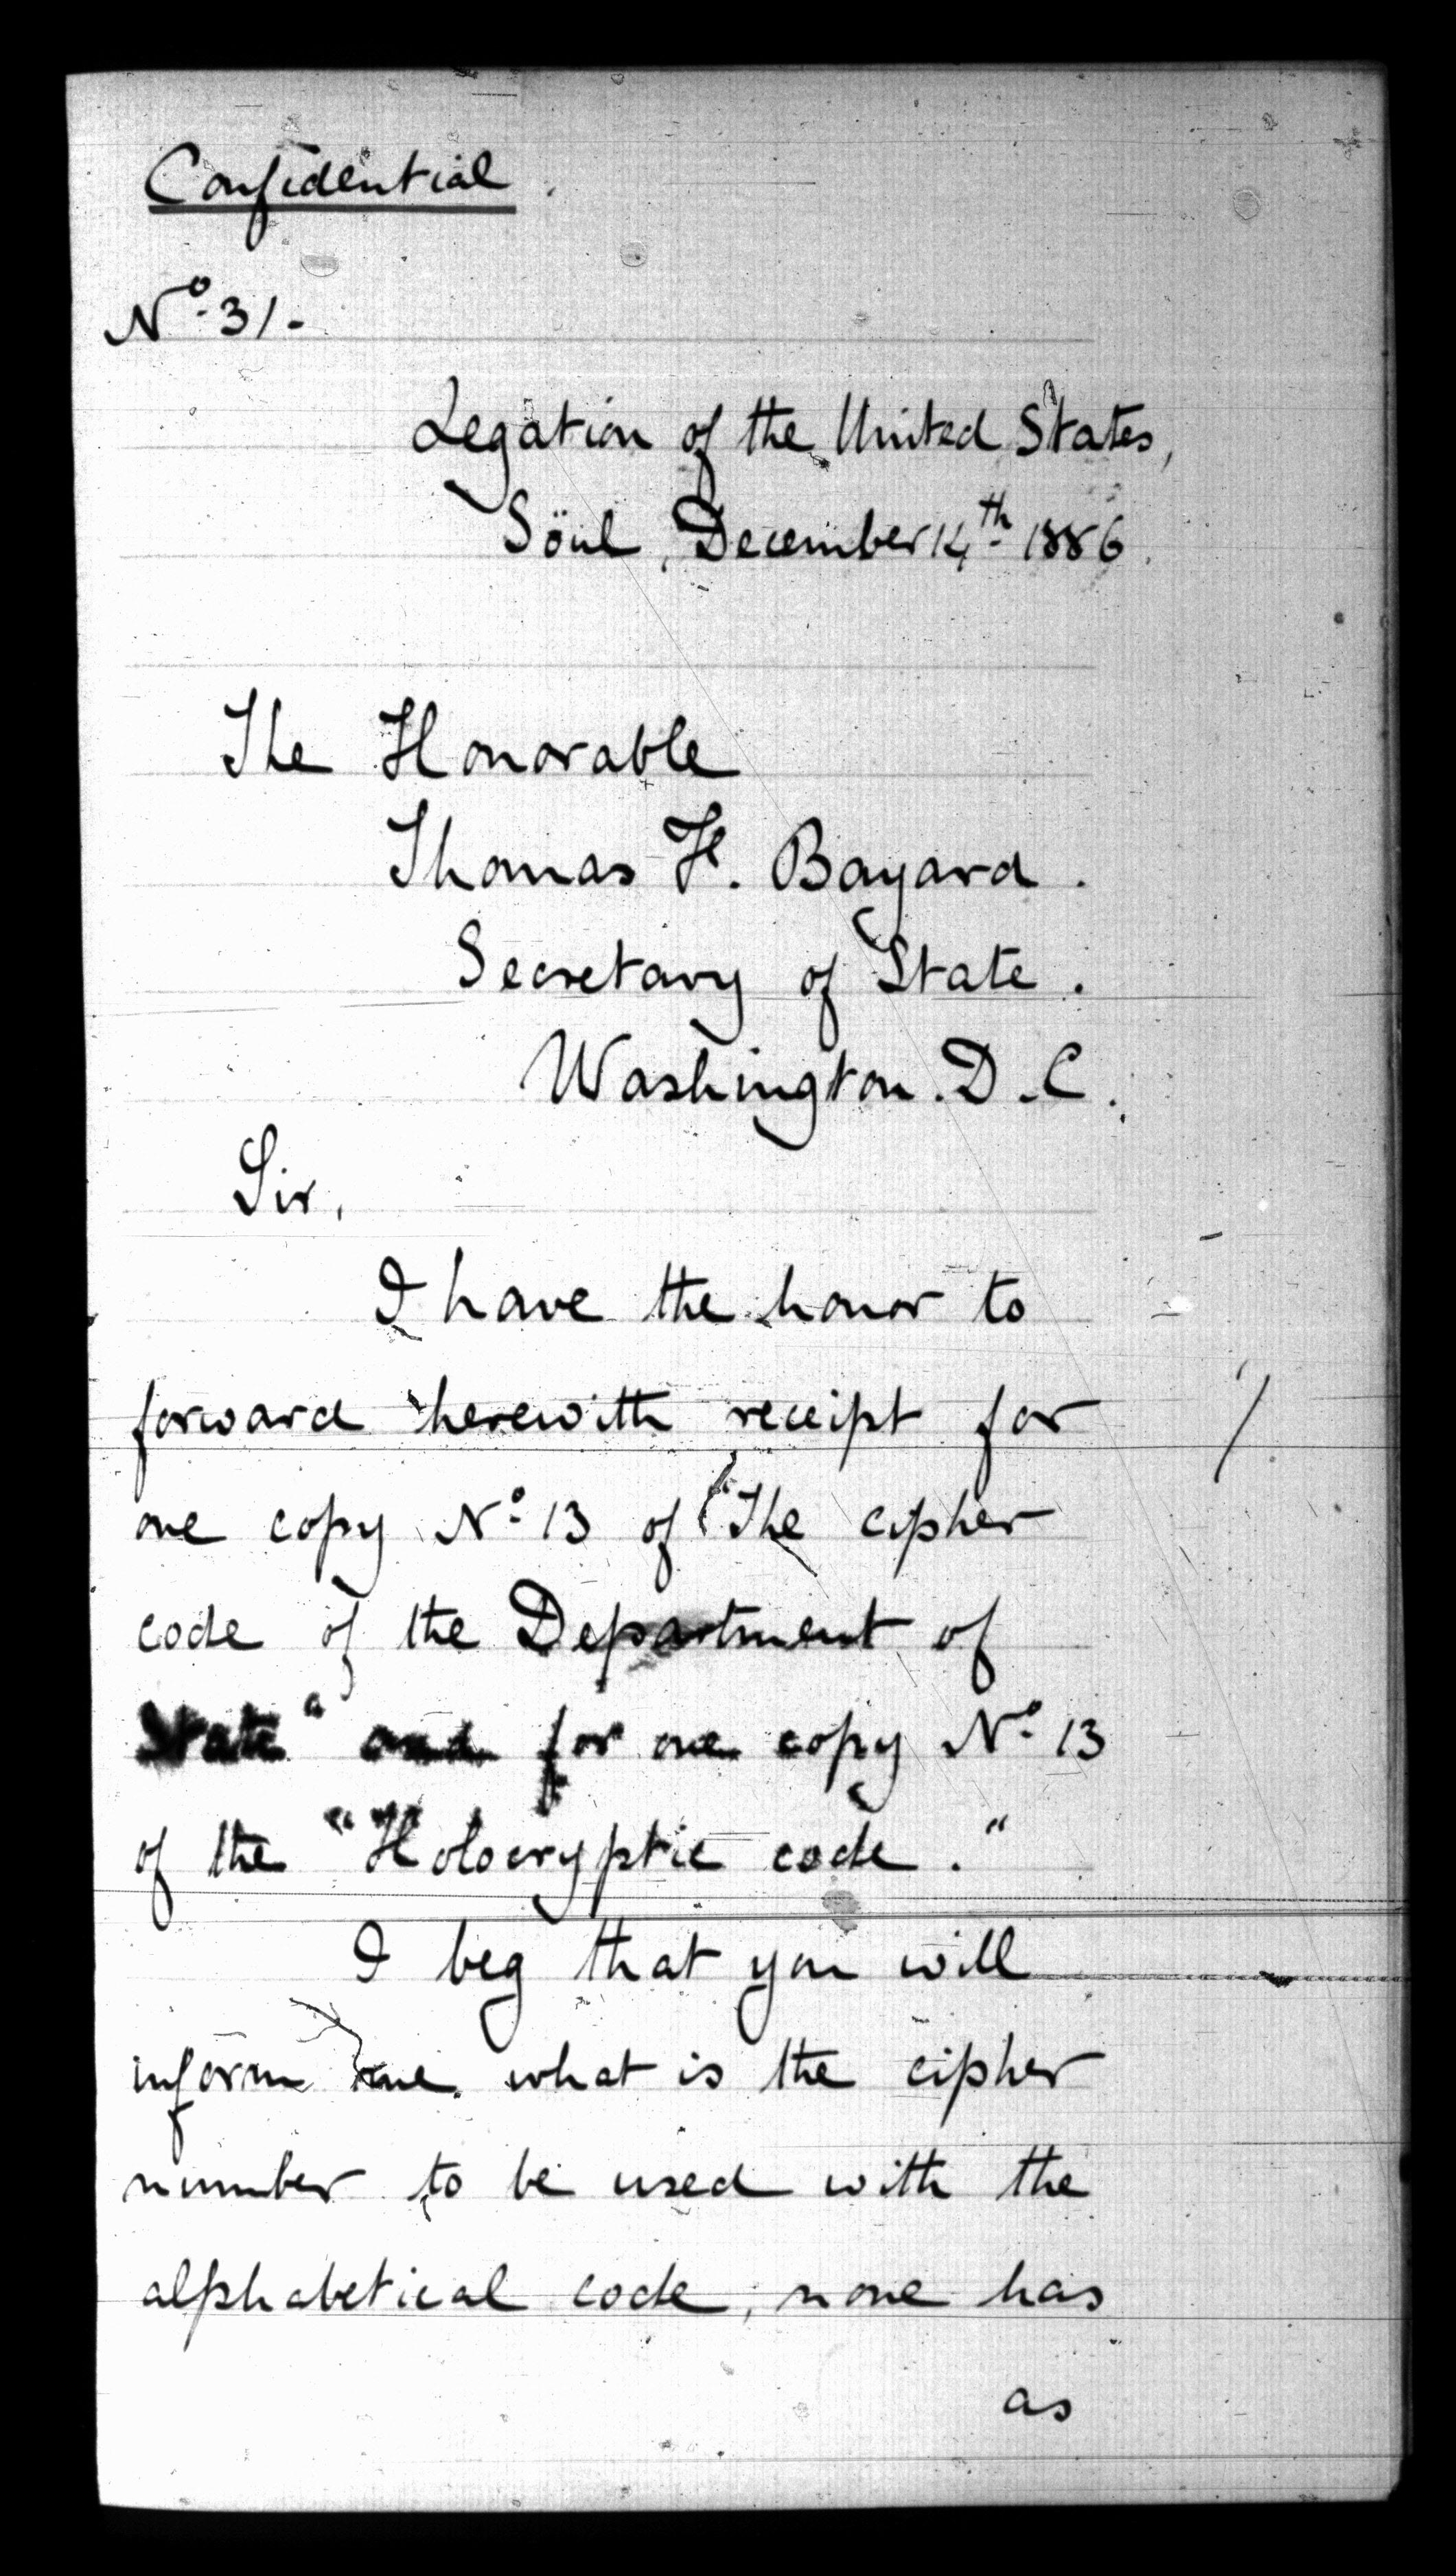 Confidential.
Nº 31.
Legation of the United States,
Söul, December 14th 1886.
The Honorable
Thomas F. Bayard.
Secretary of State.
Washington. D.C.
Sir,
I have the honor to
forward herewith receipt for
one copy Nº 13 of "The cipher
code of the Department of
State" and for one copy Nº 13
of the "Holocryptic code."
I beg that you will
inform me what is the cipher
number to be used with the
alphabetical code, none has
as